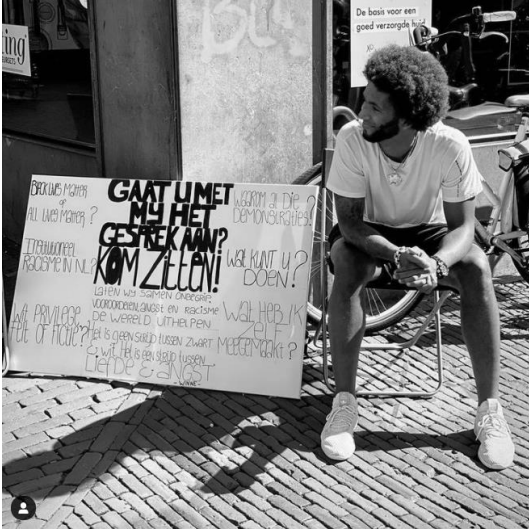 ting
De basis voor een
goed verzorgde
BLACK LIVES MATTER
OF
ALL LIVES MATTER?
INSTITUTIONEEL
RACISME IN NL?
WIT PRIVILEGE
FEIT OF FICTIE??
GAAT U MET
MIJ HET
GESPREK AAN?
KOM ZITTEN!
LATEN WIJ SAMEN ONBEGRIP,
VOOROORDELEN, ANGST EN RACISME
DE WERELD UITHELPEN
Het is geen strijd tussen ZWART
& WIT. Het is een strijd tussen
LIEFDE & ANGST
WAAROM AL DIE
DEMONSTRATIES?
WAT KUNT U
DOEN?
WAT HEB IK
ZELF
MEEGEMAAKT?